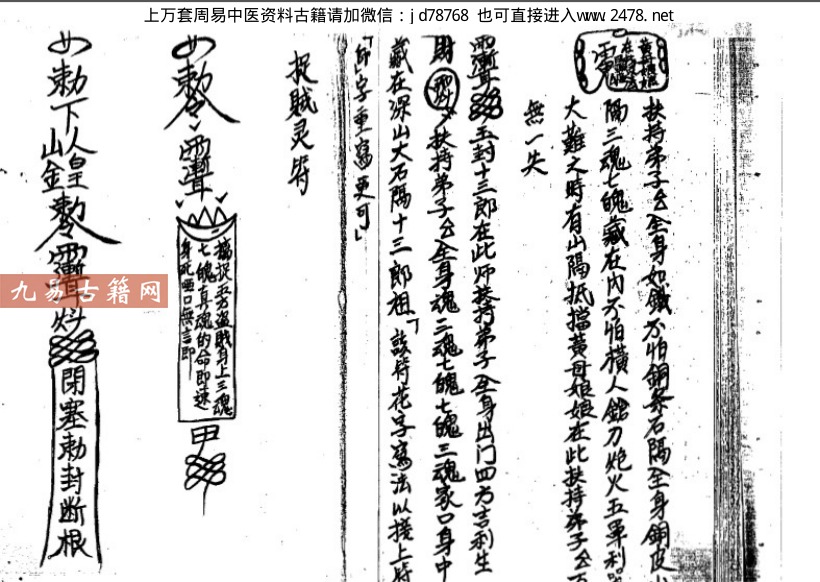 上万套周易中医资料古籍请加微信：jd78768 也可直接进入www.2478.net
扶持弟子公全身如鐵不怕銅条石隔全身銅皮
隔三魂七魄藏在内不怕橫人鎗刀炮火五軍利
大难之時有山隔抵擋黄母娘娘在此扶持弟子公
無一失
玉封十三郎在此师扶持弟子全身出门四方吉利生
財 扶持弟子公全身魂三魂七魄七魄三魂家口身中
藏在深山大石隔十三郎祖「該符花字寫法以接上符
「印」字重寫更可」
捉贼灵符
勅令
擒捉 盗賊身上三魂
七魄真魂的命即速
身死啞口無言即
甲
勅下人皇勅令
山金
閉塞勅封断根
九易古籍网